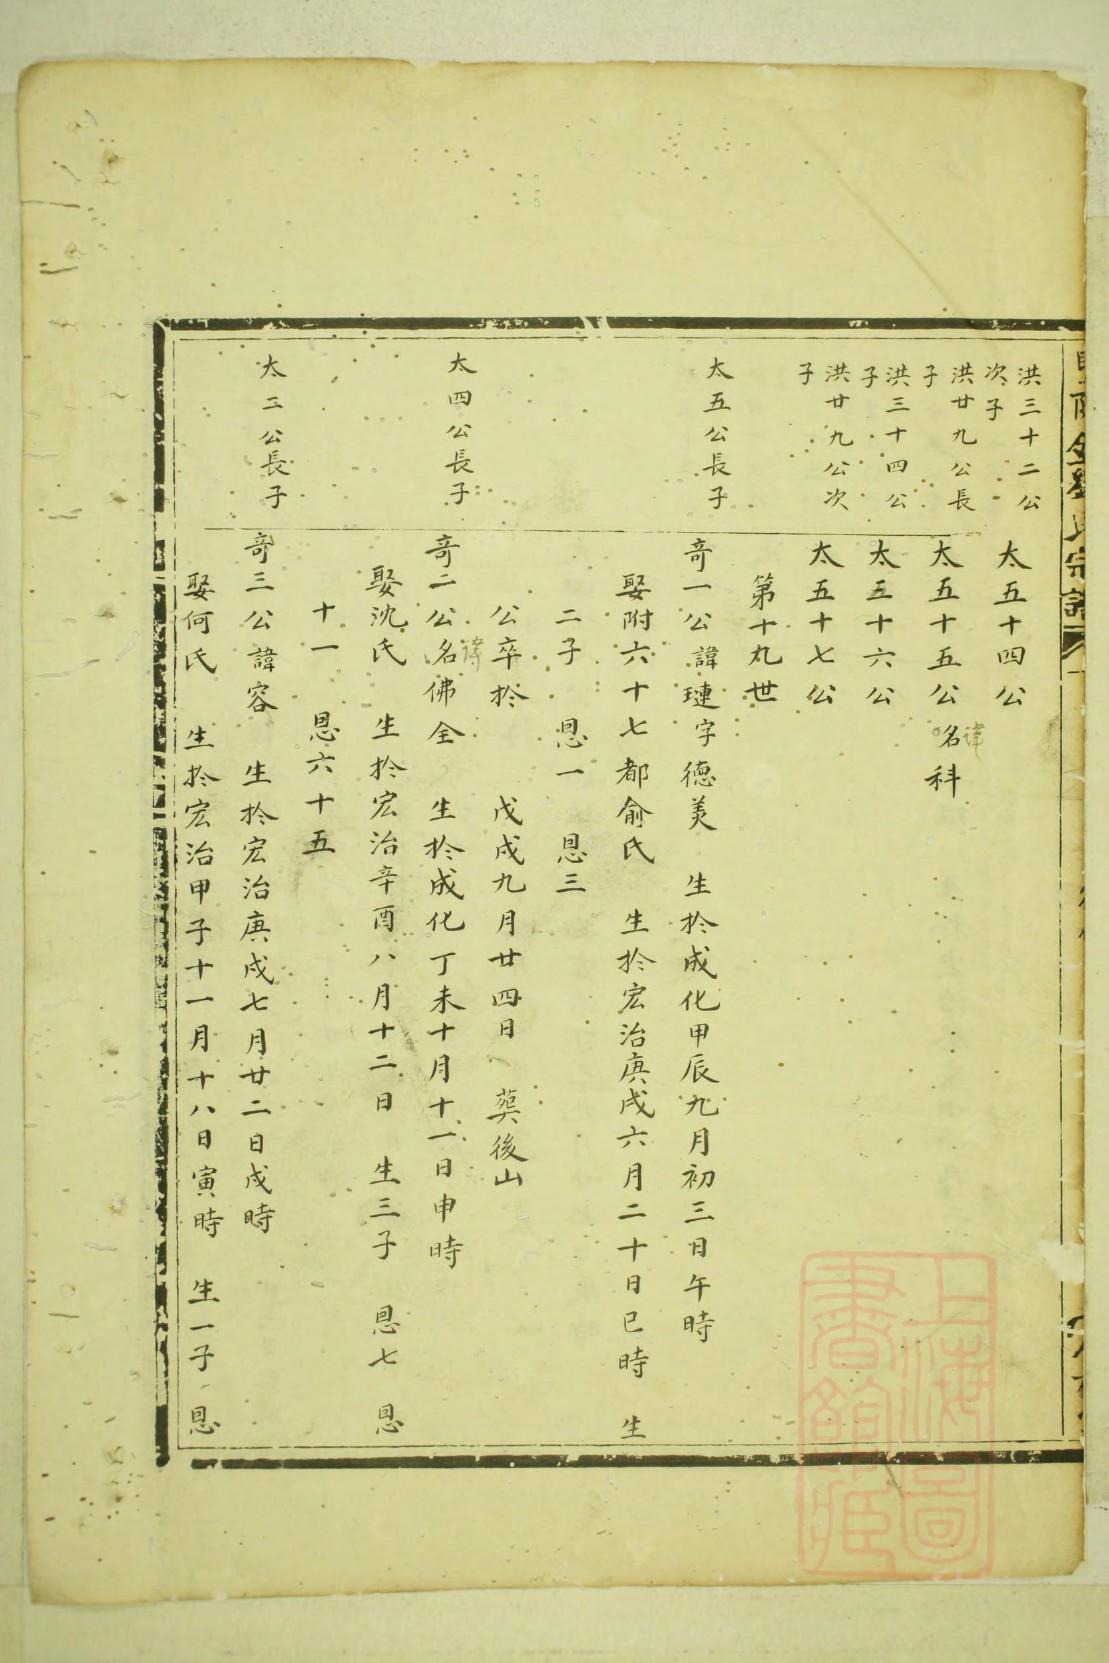 洪三十二公
次子
太五十四公
洪廿九公長
子
太五十五公名諱科
洪三十四公
子
太五十六公
洪廿九公次
子
太五十七公
第十九世
太五公長子
奇一公諱璉字德美 生於成化甲辰九月初三日午時
娶附六十七都俞氏 生於宏治庚戌六月二十日巳時 生
二子 恩一 恩三
公卒於 戊戌九月廿四日 葬後山
太四公長子
奇二公名諱佛全 生於成化丁未十月十一日申時
娶沈氏 生於宏治辛酉八月十二日 生三子 恩七 恩
十一 恩六十五
太二公長子
奇三公諱容 生於宏治庚戌七月廿二日戌時
娶何氏 生於宏治甲子十一月十八日寅時 生一子 恩
氏宗譜
上海圖
書館藏